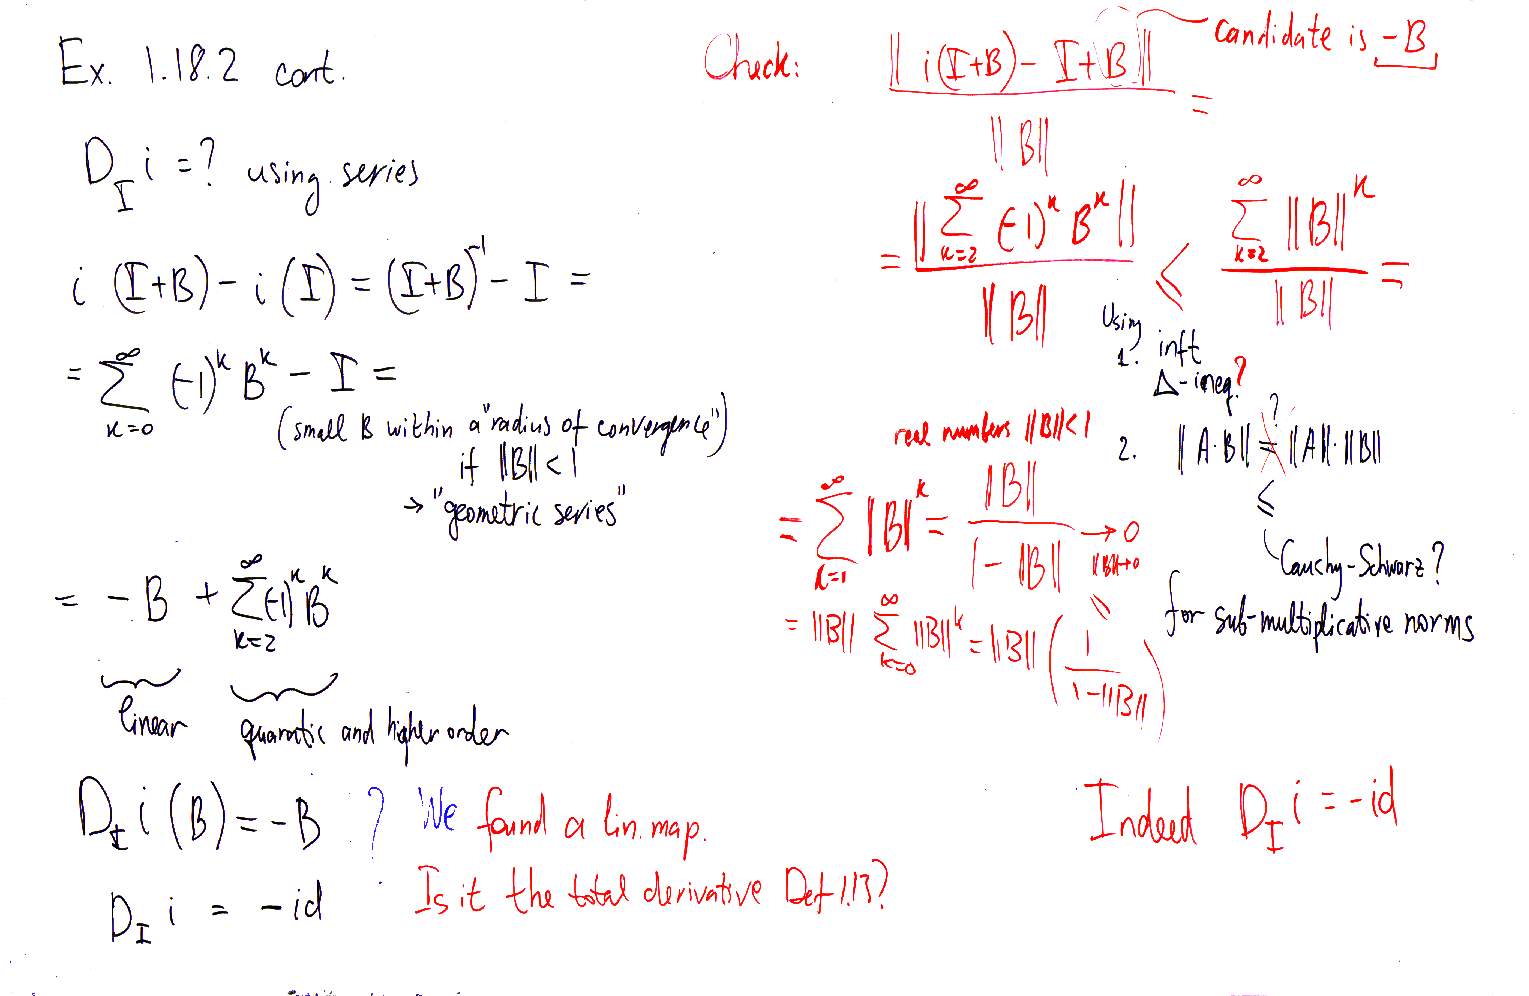 Ex. 1.18.2 cont.
D_I i = ? using series
i (I+B) - i (I) = (I+B)^{-1} - I =
= \sum_{k=0}^{\infty} (-1)^k B^k - I =
(small B within a "radius of convergence")
if ||B|| < 1
→ "geometric series"
= - B + \sum_{k=2}^{\infty} (-1)^k B^k
linear
quaratic and higher order
D_I i (B) = - B ? We found a lin. map.
D_I i = - id Is it the total derivative Def 1.13?
Check: || i(I+B) - I + B || / || B || =
candidate is - B
= || \sum_{k=2}^{\infty} (-1)^k B^k || / || B || ≤ \sum_{k=2}^{\infty} || B ||^k / || B || =
Using
1. inft
Δ-ineq?
2. || A·B || = || A || · || B ||
?
≤
Cauchy-Schwarz?
for sub-multiplicative norms
real numbers ||B|| < 1
= \sum_{k=1}^{\infty} || B ||^k = || B || / 1 - || B || → 0
||B|| → 0
= || B || \sum_{k=0}^{\infty} || B ||^k = || B || ( 1 / 1 - || B || )
Indeed D_I i = - id